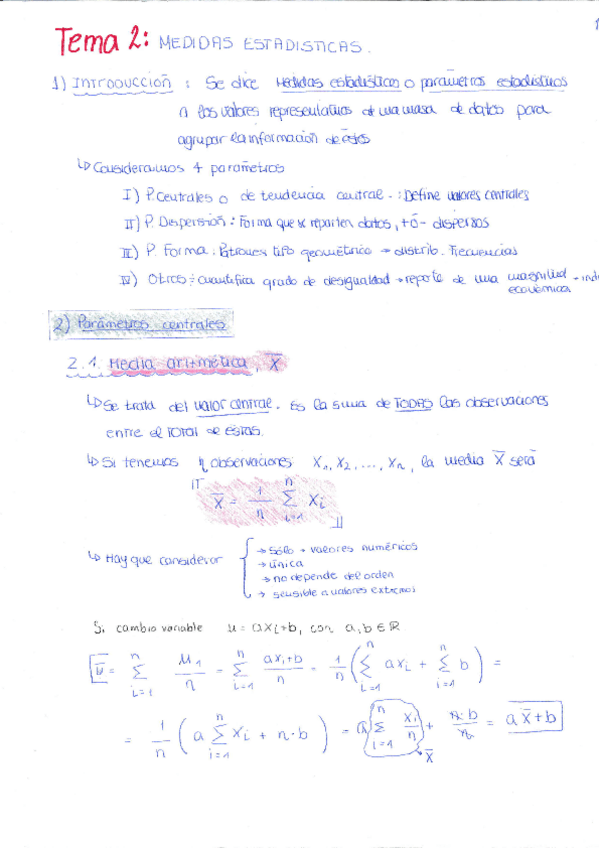 1
Tema 2: MEDIDAS ESTADISTICAS.
1) INTRODUCCIÓN : Se dice Medidas estadísticas o parámetros estadísticos
a los valores representativos de una masa de datos para
agrupar la información de éstos
↳ Consideramos 4 parámetros
I) P. Centrales o de tendencia central. : Define valores centrales
II) P. Dispersión : Forma que se reparten datos, + ó - dispersos
III) P. Forma : Patrones tipo geométrico → distrib. Frecuencias
IV) Otros : cuantifica grado de desigualdad → reparto de una magnitud - ind
económica
2) Parámetros centrales
2.1. Media aritmética, X̅
↳ Se trata del valor central. Es la suma de TODAS las observaciones
entre el TOTAL de éstas.
↳ Si tenemos n observaciones X₁, X₂, ..., Xn, la media X̅ será
X̅ = 1/n Σ_{i=1}^{n} Xi
↳ Hay que considerar { → Sólo → valores numéricos
→ única
→ no depende del orden
→ sensible a valores extremos
Si cambio variable u = axi+b, con a, b ∈ ℝ
u̅ = Σ_{i=1}^{n} u₁/n = Σ_{i=1}^{n} (axi+b)/n = 1/n ( Σ_{i=1}^{n} axi + Σ_{i=1}^{n} b ) =
= 1/n ( a Σ_{i=1}^{n} xi + n·b ) = a Σ_{i=1}^{n} xi/n + n·b/n = a x̅ + b
X̅